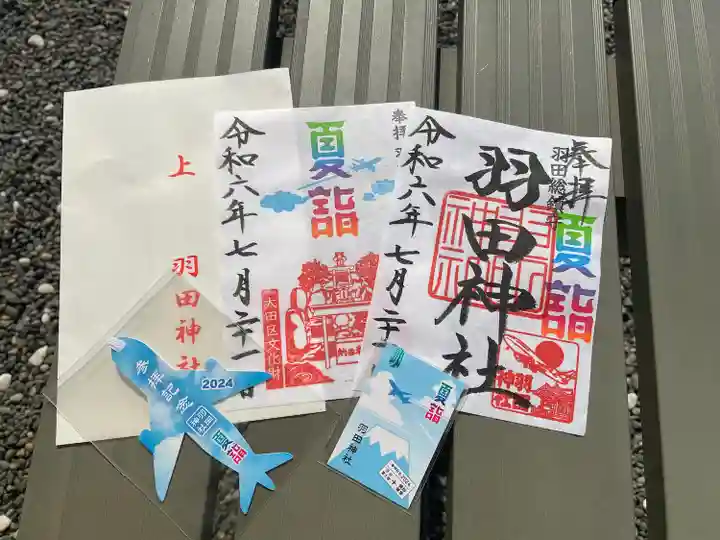 上
羽田神社
奉拝
夏詣
令和六年七月二十一日
大田区文化財
奉拝
羽田総鎮守
夏詣
羽田神社
令和六年七月二十一
羽田神社
参拝記念
2024
羽田神社
夏詣
夏詣
羽田神社